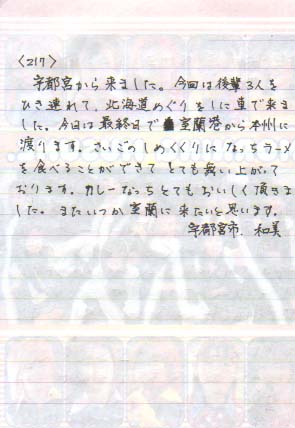 〈217〉
宇都宮から来ました。今回は後輩3人を
ひき連れて、北海道めぐりをしに車で来ま
した。今日は最終日で室蘭港から本州に
渡ります。さいごのしめくくりになっちラーメ
を食べることができてとても舞い上がって
おります。カレーなっちとてもおいしく頂きま
した。またいつか室蘭に来たいと思います。
宇都宮市. 和美